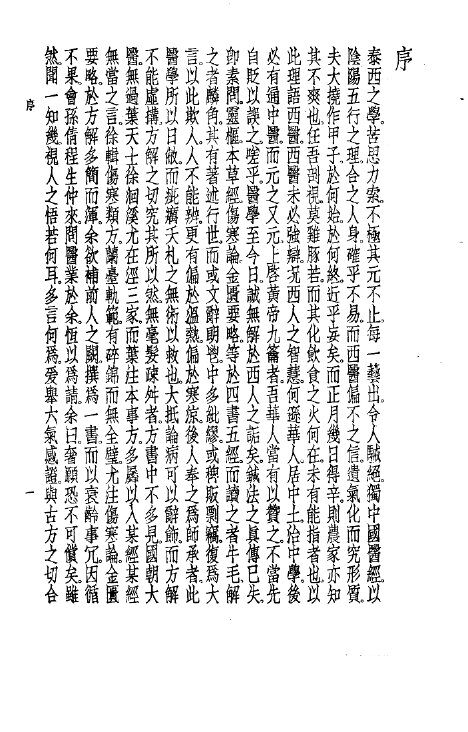 序
泰西之學。苦思力索。不極其元不止。每一藝出。令人駴絕。獨中國醫經。以
陰陽五行之理。合之人身。確乎不易。而西醫偏不之信。遺氣化而究形質。
夫大撓作甲子。於何始。於何終。近乎妄矣。而正月幾日得辛。則農家亦知
其不爽也。任吾剖視。莫雞豚若。而其化飲食之火何在。未有能指者也。以
此理語西醫。西醫未必強辯。況西人之智慧。何孫華人。居中土。治中學。後
必有通中醫而元之又元。上啓黃帝九籥者。吾華人當有以贊之。不當先
自貶以諛之。嗟乎。醫學至今日。誠無解於西人之詬矣。鍼法之眞傳已失。
卽素問靈樞本草經傷寒論金匱要略。等於四書五經而讀之者牛毛。解
之者麟角。其有著述行世。而或文辭朝袍。中多紕繆。或稗販剽竊。復爲大
言以此欺人。人不能辨。更有偏於溫熱。偏於寒涼。後人奉之爲師承者。此
醫學所以日敝。而疵癘夭札之無術以救也。大抵論病可以辭飾。而方解
不能虛搆。方解之切究其所以然。無毫髮疎舛者。方書中不多見。國朝大
醫無過葉天士徐洄溪尤在經三家。而葉注本事方。多屬以入某經某經
無當之言。徐輯傷寒類方。蘭臺軌範。有碎錦而無全璧。尤注傷寒論。金匱
要略。於方解多簡而渾。余欲補前人之闕。撰爲一書。而以衰齡事冗。因循
不果。會孫倩程生仲來。問醫業於余。恆以爲請。余曰。奢願恐不可償矣。雖
然。聞一知幾。視人之悟若何耳。多言何爲。爰舉大氣感證與古方之切合
序
一